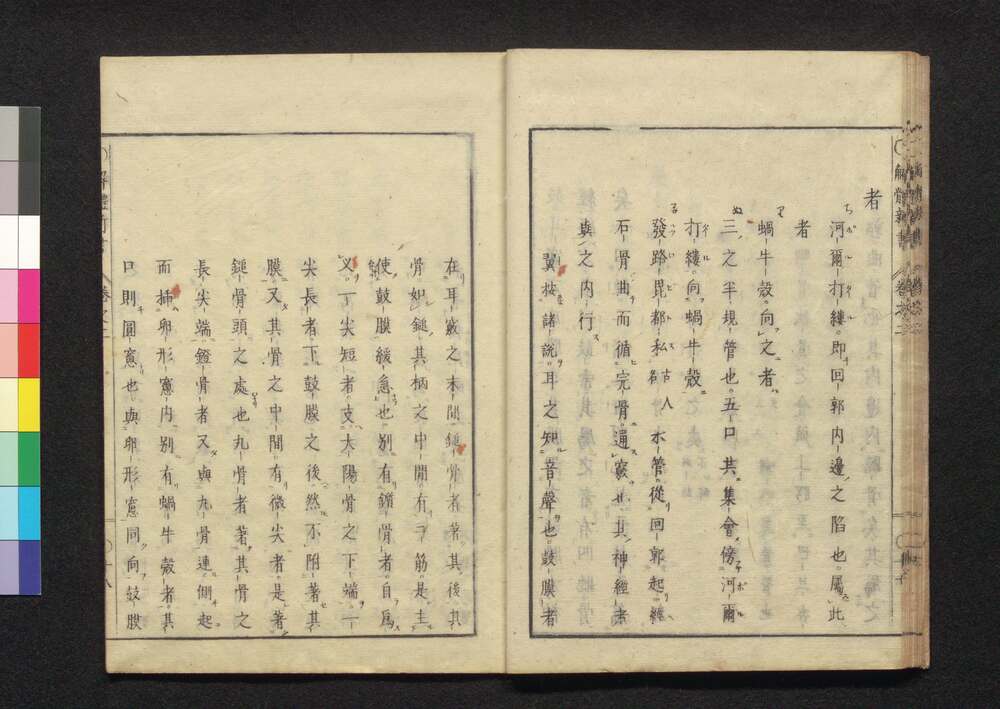 者
河爾打縷即回郭内邊之陷也屬此
者
蝸牛殼向之者
三之半規管也五口其集會傍河爾
打縷向蝸牛殼
發路毘都私人水管從回郭起經
石骨曲而循完骨遍竅其神經者
與之内行
翼按諸説耳之知音聲也鼓膜者
在耳竅之本間鎚骨者著其後其
骨如鎚其柄之中間有一筋是主
使鼓膜緩急也別有鐙骨者自爲
又一尖短者支大陽骨之下端一
尖長者下鼓膜之後然不附著其
膜又其骨之中間有微尖者是著
鎚骨頭之處也九骨者著其骨之
長尖端鐙骨者又與九骨連側起
而挿卵形窻内別有蝸牛殼者其
口則圓窻也與卵形窻同向鼓膜